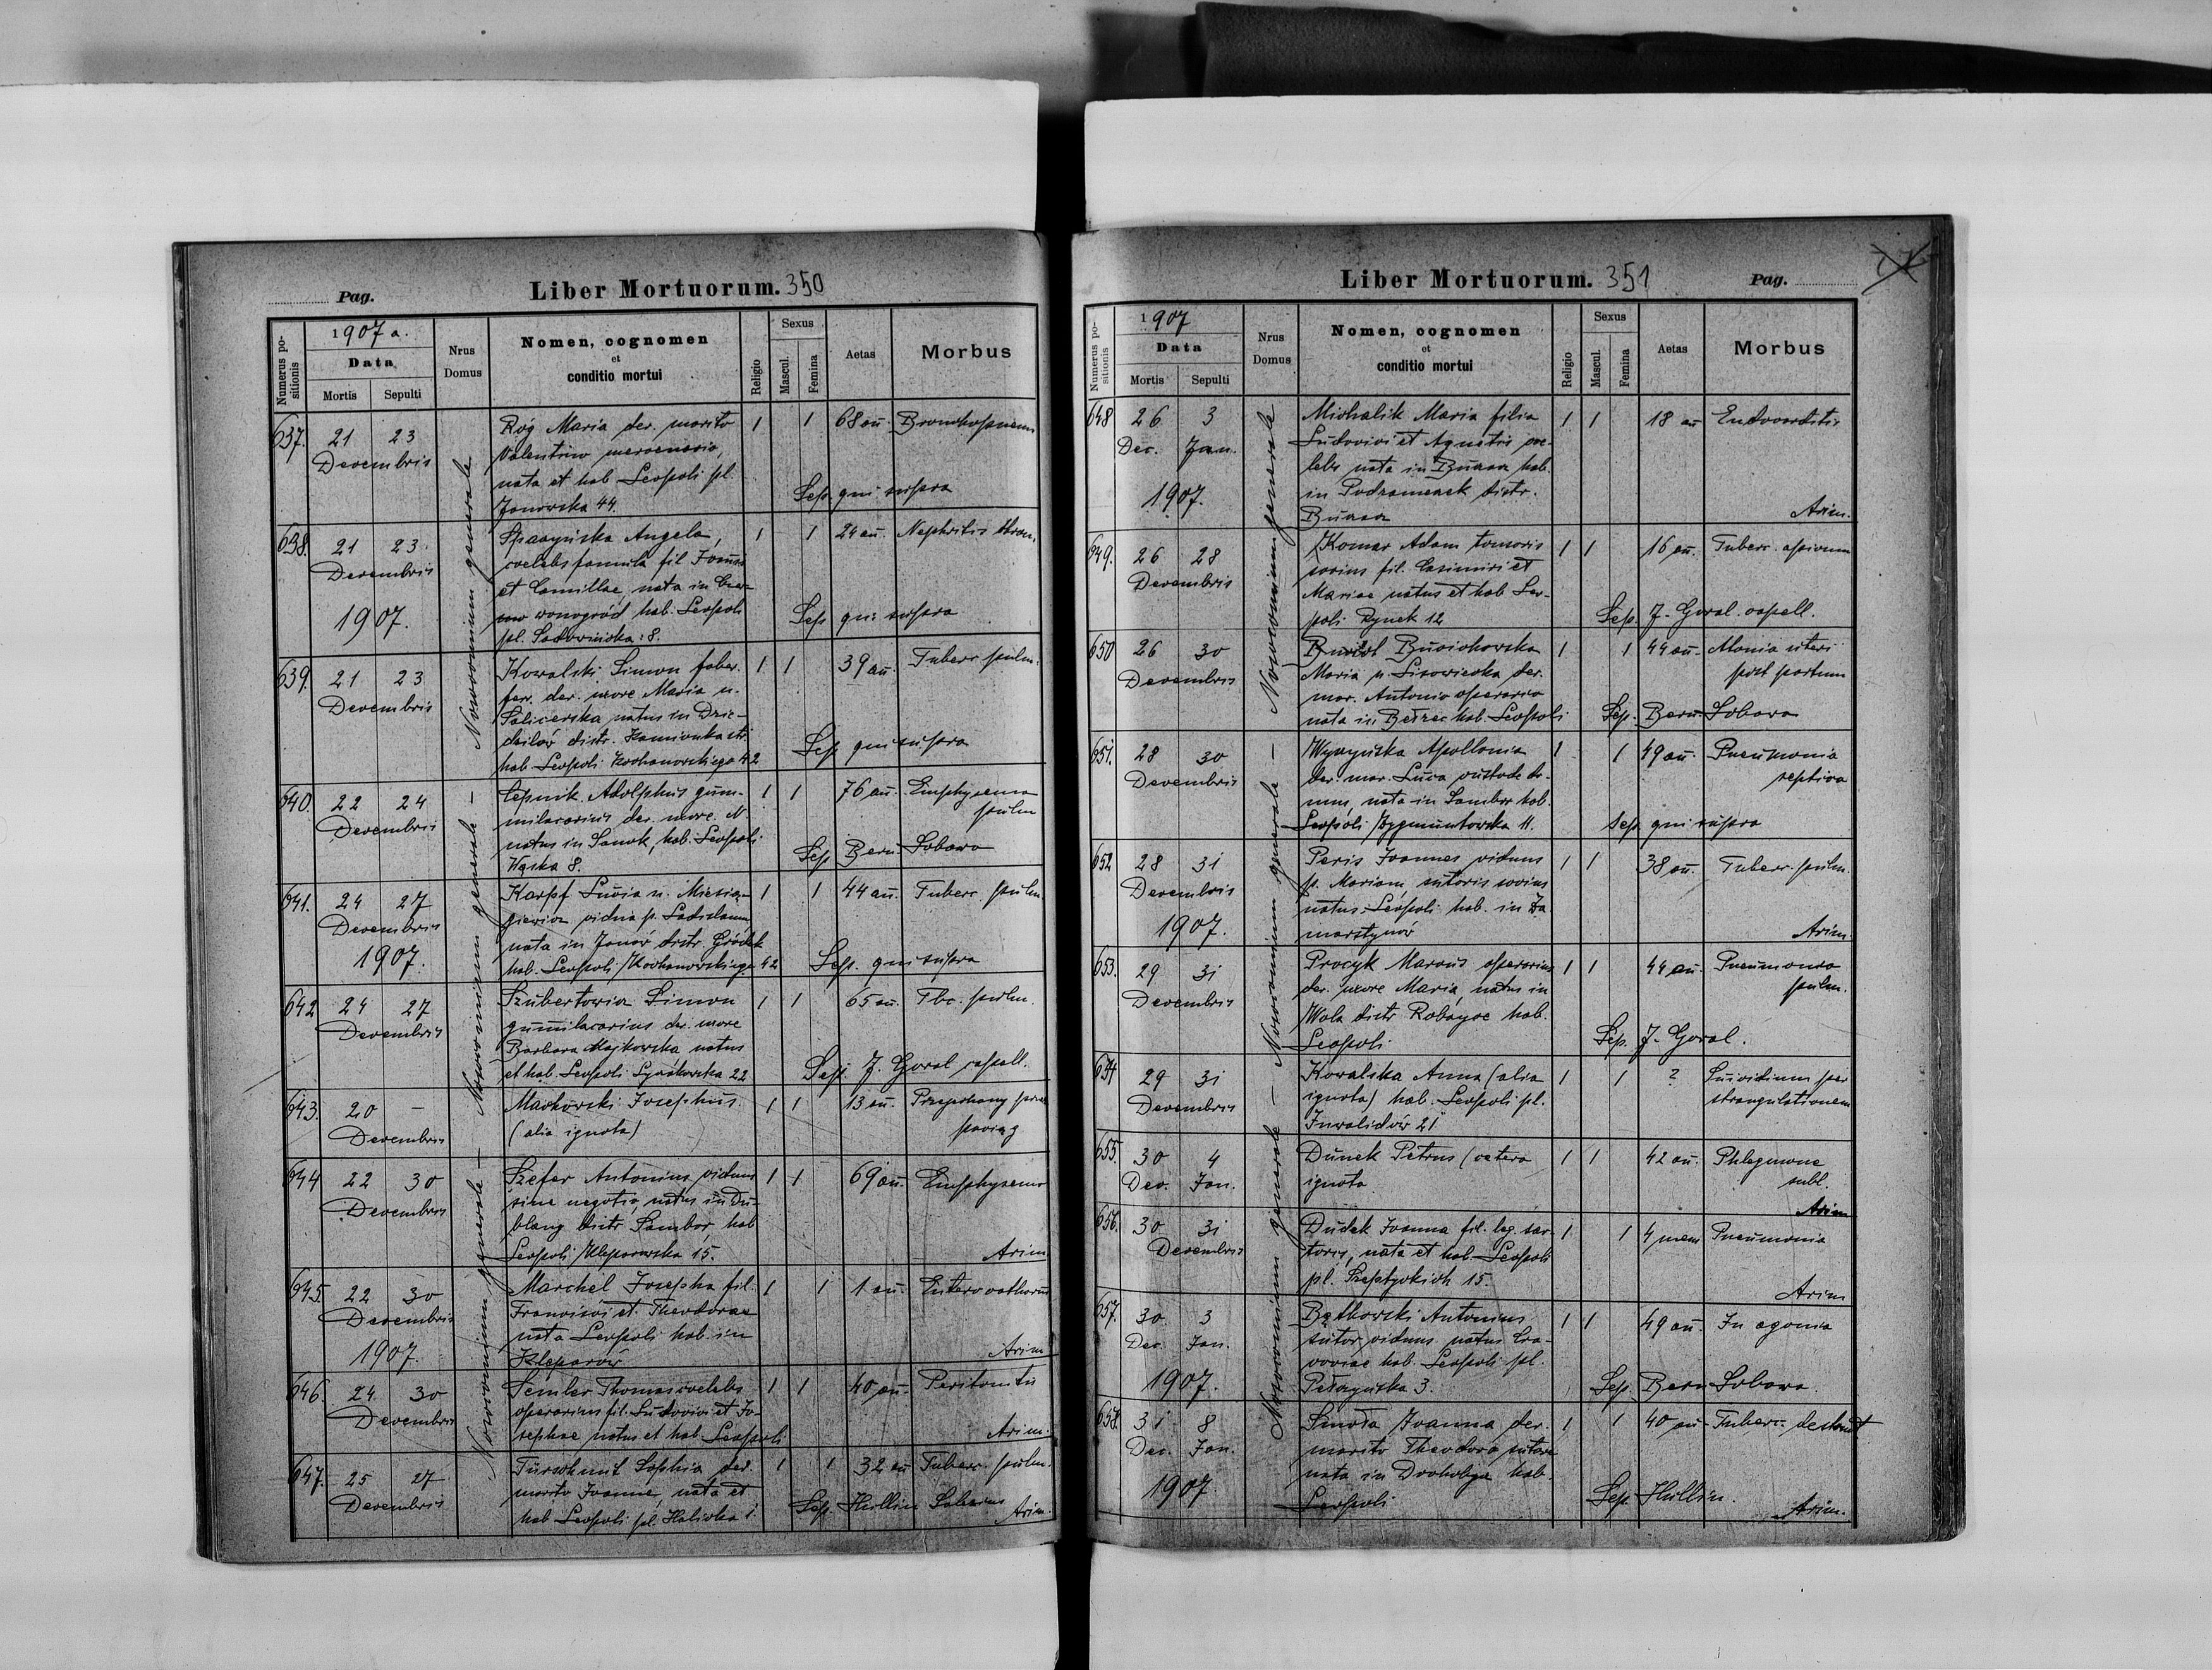 Pag.
Liber Mortuorum. 350
Numerus positionis
1907 a.
Data
Mortis
Sepulti
Nrus Domus
Nomen, cognomen
et
conditio mortui
Religio
Sexus
Mascul.
Femina
Aetas
Morbus
Nosocomium generale – Nosocomium generale – Nosocomium generale – Nosocomium generale
637. 21 23 Róg Maria der. marito 1 1 68 an. Bronchopneum
Decembris Valentino mercenario,
nata et hab Leopoli pl. Sep. qui supra
Janowska 44.
638. 21 23 Angela, 1 1 24 an. Nephritis chron.
Decembris coelebs famula fil Joannis
et Camillae, nata in
1907. hab. Leopoli Sep qui supra
pl. Sadownicka 8.
639. 21 23 Kowalski Simon faber. 1 1 39 an. Tuberc pulm.
Decembris ferr. der. uxore Maria n.
natus in Dzie-
dziłów distr. Kamionka str. Sep qui supra
hab. Leopoli Kochanowskiego 42
640. 22 24 Cepnik Adolphus gum- 1 1 76 an. Emphysema
Decembris milacarius der. uxore. N. pulm
natus in Sanok, hab. Leopoli Sep Bern Sobawa
Wąska 8.
641. 24 27 Karpf Lucia n. Miesią- 1 1 44 an. Tuberc. pulm
Decembris giewicz vidua p. Ladislaum
1907. nata in Janów distr. Gródek Sep. qui supra
hab. Leopoli Kochanowskiego 42
642 24 27 Szubertowicz Simon 1 1 65 an. Tbc. pulm.
Decembris gummilacarius der. uxore
Barbara Majkowska natus Sep. J. Goral capell.
et hab. Leopoli Łyczakowska 22
643. 20 – Markowski Josephus. 1 1 13 an. Przejechany przez
Decembris (alia ignota) pociąg
644 22 30 Szefer Antonius viduus 1 1 69 an. Emphysema
Decembris sine negotio, natus in Du-
blany distr. Sambor, hab
Leopoli Kleparowska 15. Arim
645. 22 30 Marchel Josepha fil. 1 1 1 an. Enterocatharus
Decembris Francisci et Theodorae
1907. nata Leopoli hab in
Kleparów Arim
646. 24 30 Semler Thomas coelebs 1 1 40 an. Peritonitis
Decembris operarius fil. Ludovici et Jo-
sephae natus et hab Leopoli Arim.
647. 25 27 Türschmit Sophia der. 1 1 32 an Tuberc. pulm.
Decembris marito Joanne, nata et
hab Leopoli pl. Halicka 1. Sep. Hullin Arim.
Liber Mortuorum. 351
Pag.
Numerus positionis
1907
Data
Mortis
Sepulti
Nrus Domus
Nomen, cognomen
et
conditio mortui
Religio
Sexus
Mascul.
Femina
Aetas
Morbus
Nosocomium generale – Nosocomium generale – Nosocomium generale
648 26 3 Michalik Maria filia 1 1 18 an Endocarditis
Dec. Jan. Ludovici et Agnetis coe-
lebs nata in Buczacz hab.
1907. in Podzameczek distr.
Buczacz Arim.
649. 26 28 Komar Adam tonsoris 1 1 16 an. Tuberc. apicum
Decembris socius fil. Casimiri et
Mariae natus et hab Leo-
poli Rynek 12 Sep. J. Goral. capell.
650 26 30 Bucichowska 1 1 44 an. Atonia uteri
Decembris Maria n. Lisowiecka der. post partum
mar. Antonio operario
nata in Bełzec hab. Leopoli Sep. Bern Sobawa
651. 28 30 Apollonia 1 1 49 an. Pneumonia
Decembris der. mar. Luca custode do- septica
mus, nata in Sambor hab.
Leopoli Zygmuntowska 11. Sep qui supra
652 28 31 Peris Joannes viduus 1 1 38 an. Tuberc. pulm.
Decembris p. Mariam, sutoris socius
1907. natus Leopoli hab. in Za-
marstynów Arim.
653. 29 31 Procyk Marcus operarius 1 1 44 an. Pneumonia
Decembris der. uxore Maria, natus in pulm.
Wola distr hab.
Leopoli Sep. J. Goral.
654 29 31 Kowalska Anna (alia 1 1 ? Suicidium per
Decembris ignota) hab. Leopoli pl. strangulationem
Inwalidów 21
655. 30 4 Dunek Petrus (cetera 1 1 42 an. Phlegmone
Dec. Jan. ignota subl.
Arim
656. 30 31 Dudek Joanna fil. leg. sar- 1 1 4 mens Pneumonia
Decembris toris, nata et hab. Leopoli
pl. Szeptyckich 15. Arim
657. 30 3 Bętkowski Antonius 1 1 49 an. In agonia
Dec. Jan. sutor viduus natus Cra-
coviae hab. Leopoli pl.
1907. Pełczyńska 3. Sep. Bern Sobawa.
658. 31 8 Smoła Joanna der. 1 1 40 an Tuberc.
Dec. Jan. marito Theodoro sutore
1907 nata in Drohobycz hab.
Leopoli Sep Hullin. Arim.